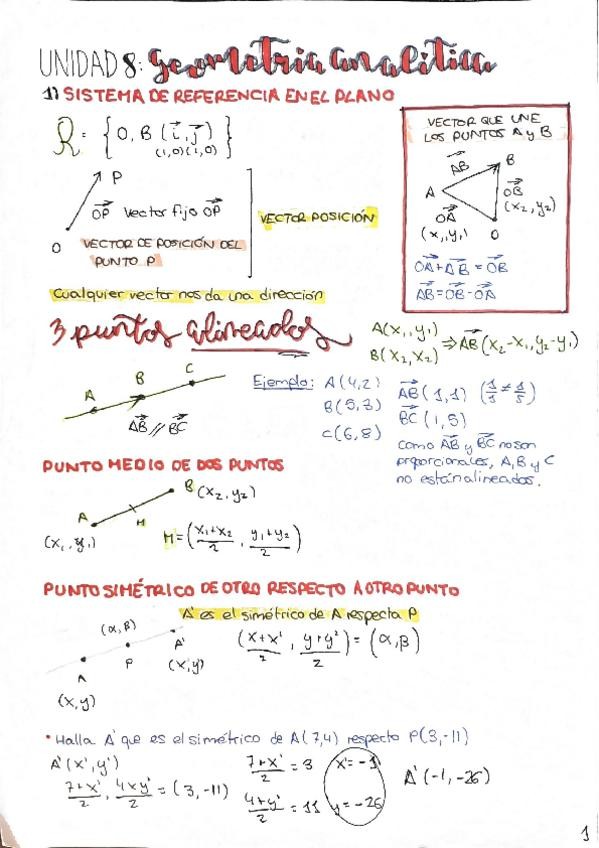 UNIDAD 8: Geometria analitica
1) SISTEMA DE REFERENCIA EN EL PLANO
R = { O, B (i⃗, j⃗) }
(1,0)(1,0)
P
OP⃗ vector fijo OP⃗
O VECTOR DE POSICIÓN DEL
PUNTO P
VECTOR POSICIÓN
Cualquier vector nos da una dirección
VECTOR QUE UNE
LOS PUNTOS A y B
AB⃗
B
A
OB⃗
(x₂, y₂)
OA⃗
(x₁, y₁)
O
OA⃗ + AB⃗ = OB⃗
AB⃗ = OB⃗ - OA⃗
3 puntos alineados
A(x₁, y₁)
B(x₂, x₂)
⇒ AB⃗ (x₂-x₁, y₂-y₁)
A B C
AB⃗ // BC⃗
Ejemplo: A(4,2)
B(5,3)
C(6,8)
AB⃗ (1,1) (1/1 ≠ 1/5)
BC⃗ (1,5)
como AB⃗ y BC⃗ no son
proporcionales, A, B y C
no están alineados.
PUNTO MEDIO DE DOS PUNTOS
B (x₂, y₂)
A
M
(x₁, y₁)
M = (x₁+x₂/2, y₁+y₂/2)
PUNTO SIMÉTRICO DE OTRO RESPECTO A OTRO PUNTO
A' es el simétrico de A respecta P
(α, β)
A P A'
(x,y)
(x,y)
(x+x'/2, y+y'/2) = (α,β)
• Halla A' que es el simétrico de A(7,4) respecto P(3,-11)
A'(x',y')
7+x'/2, 4xy'/2 = (3,-11)
7+x'/2 = 3 x' = -1
4+y'/2 = 11 y = -26
A'(-1,-26)
1